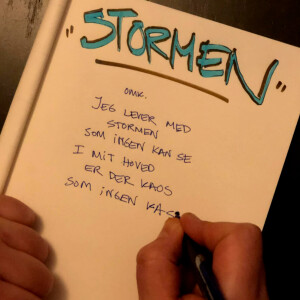 "STORMEN"
OMK.
JEG LEVER MED
STORMEN
SOM INGEN KAN SE
I MIT HOVED
ER DER KAOS
SOM INGEN KA